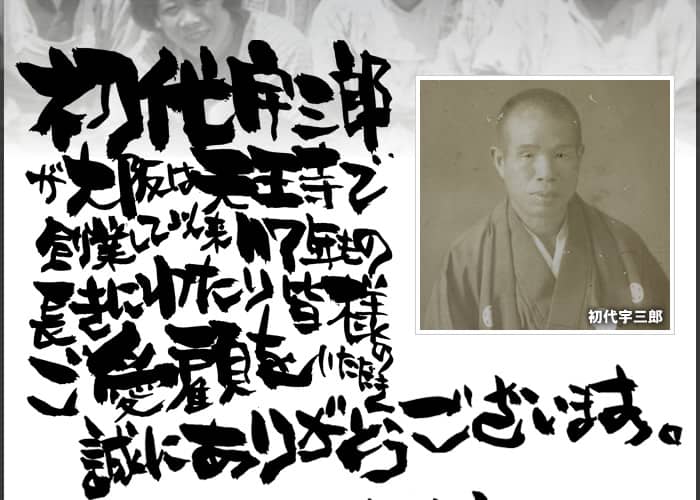 初代宇三郎
が大阪は天王寺で
創業して以来117年もの
長きにわたり皆様の
ご愛顧をいただき
誠にありがとうございます。
初代宇三郎